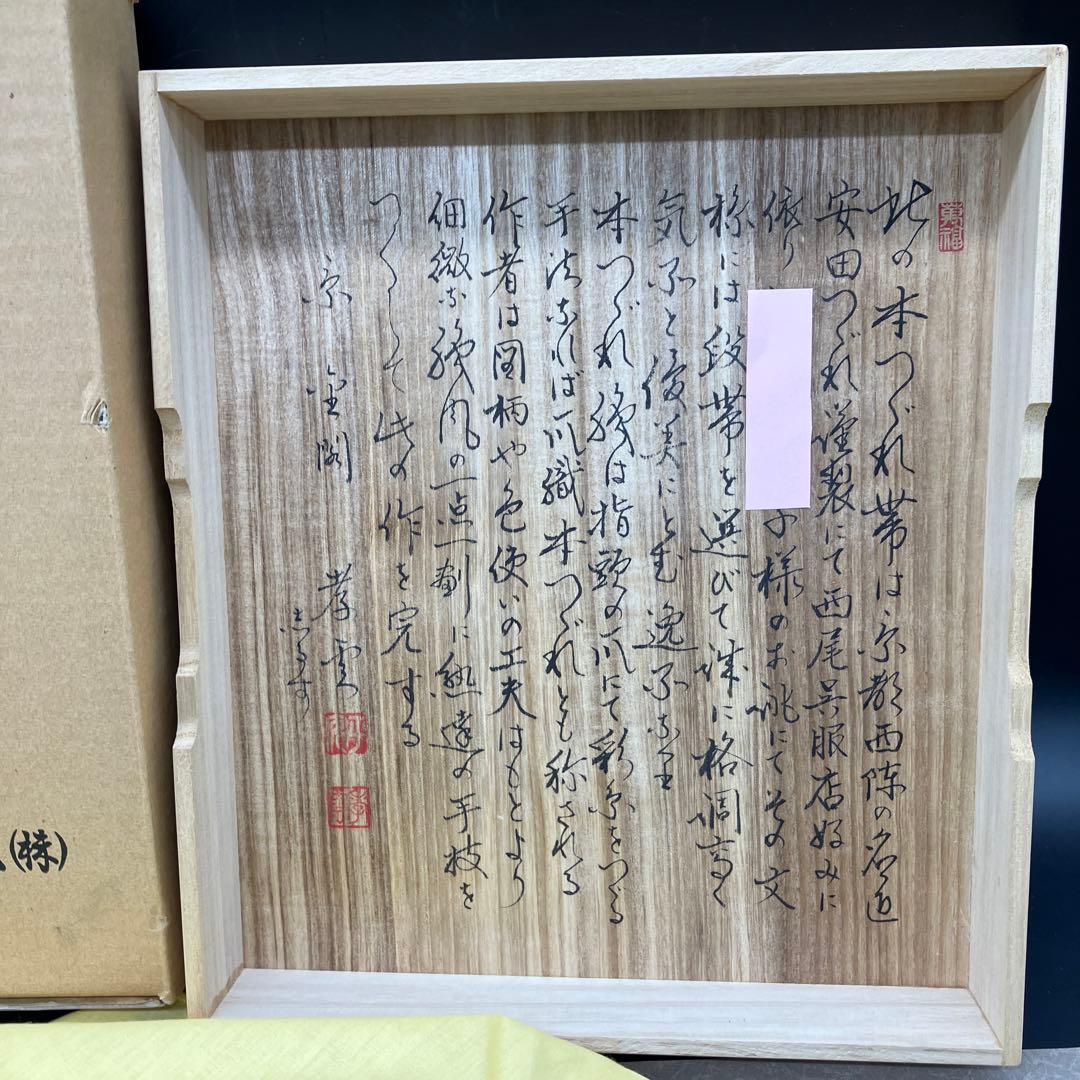 萬福
此の本つづれ帯は京都西陣の名匠
安田つづれ謹製にて西尾呉服店好みに
依り
子様のお誂にてその文
様には段帯を選びて誠に格調高く
気品と優美にとむ逸品なり
本つづれ織は指頭の爪にて彩糸をつづる
手法なれば爪織本つづれとも称される
作者は図柄や色使いの工夫はもとより
細微な織風の一点一劃に熟達の手技を
つくして此の作を完する
京 金閣 孝雲
しるす
(株)